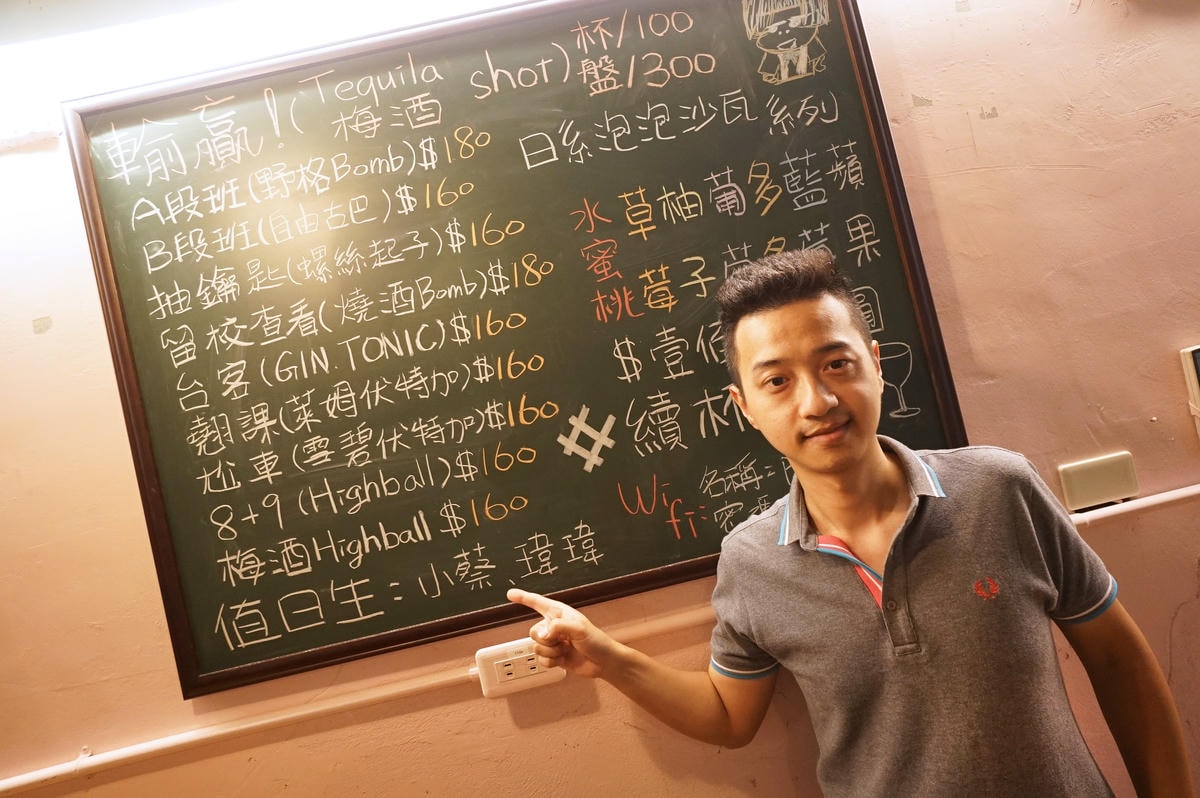 輸贏!(Tequila shot)杯/100
梅酒 盤/300
A段班(野格Bomb)$180
B段班(自由古巴)$160
抽鑰匙(螺絲起子)$160
留校查看(燒酒Bomb)$180
台客(GIN.TONIC)$160
翹課(萊姆伏特加)$160
尬車(雪碧伏特加)$160
8+9(Highball)$160
梅酒Highball $160
值日生:小蔡、瑋瑋
日系泡泡沙瓦系列
水蜜桃
草莓
柚子
葡萄
多多
藍莓
蘋果
$壹佰 圓
#續杯
Wifi:名稱:
密碼